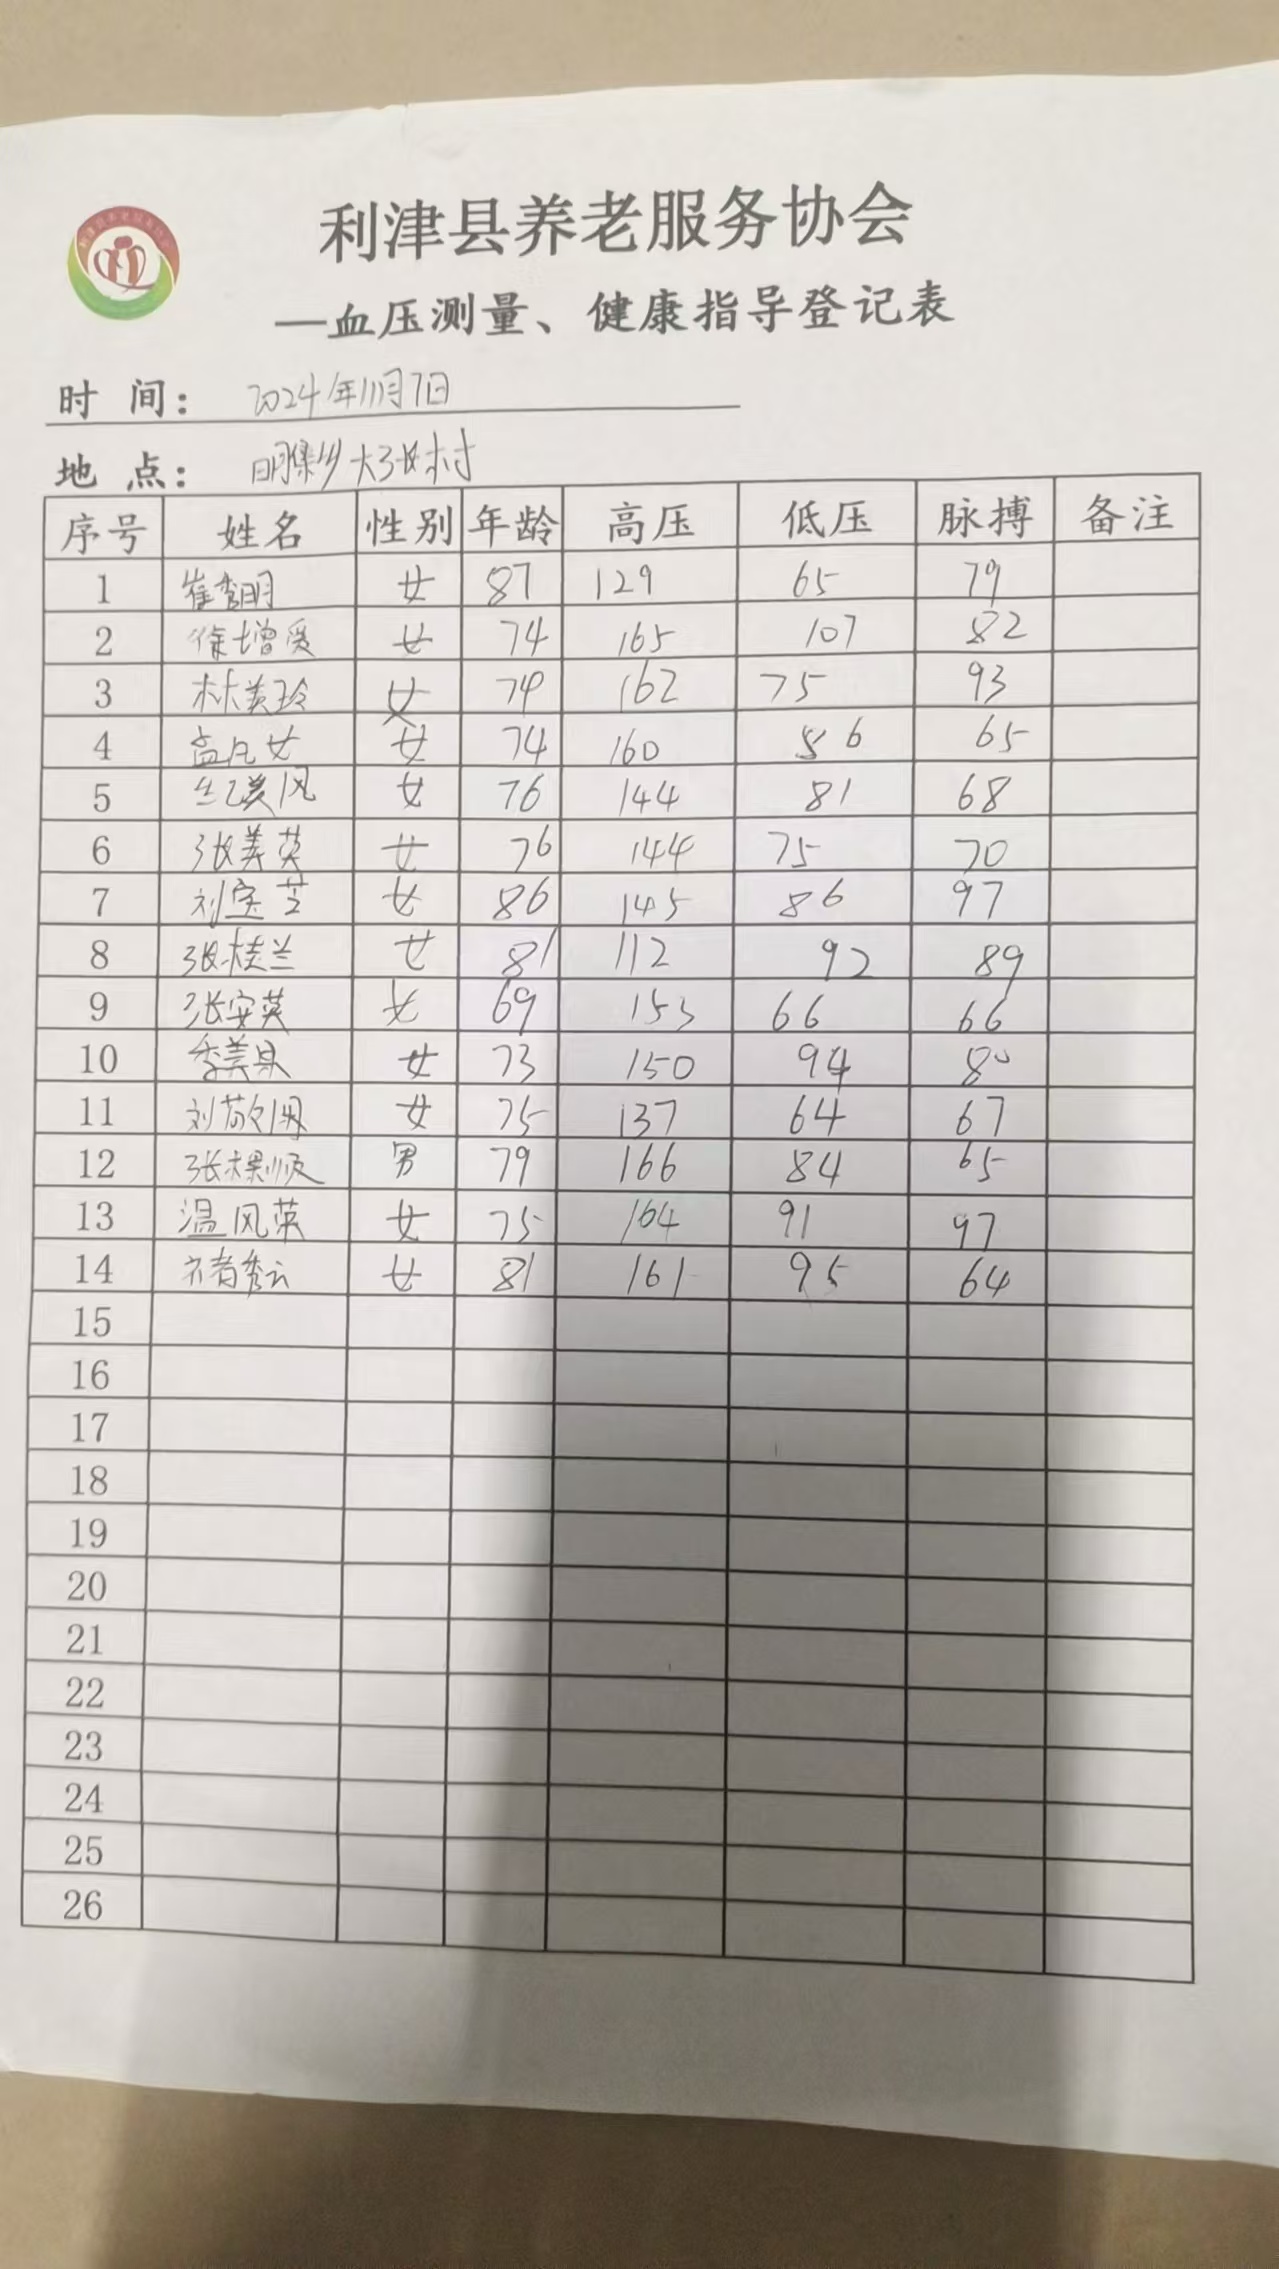 利津县养老服务协会
利津县养老服务协会
—血压测量、健康指导登记表
时 间： 2024年11月7日
地 点： 明集乡大张村
序号 姓名 性别 年龄 高压 低压 脉搏 备注
1 崔秀明 女 87 129 65 79
2 徐增爱 女 74 165 107 82
3 林美玲 女 74 162 75 93
4 女 74 160 86 65
5 美风 女 76 144 81 68
6 张美英 女 76 144 75 70
7 刘宝芝 女 86 145 86 97
8 张桂兰 女 81 112 92 89
9 张安英 女 69 153 66 66
10 季美 女 73 150 94 80
11 刘敬 女 75 137 64 67
12 张 顺 男 79 166 84 65
13 温风英 女 75 164 91 97
14 秀云 女 81 161 95 64
15
16
17
18
19
20
21
22
23
24
25
26